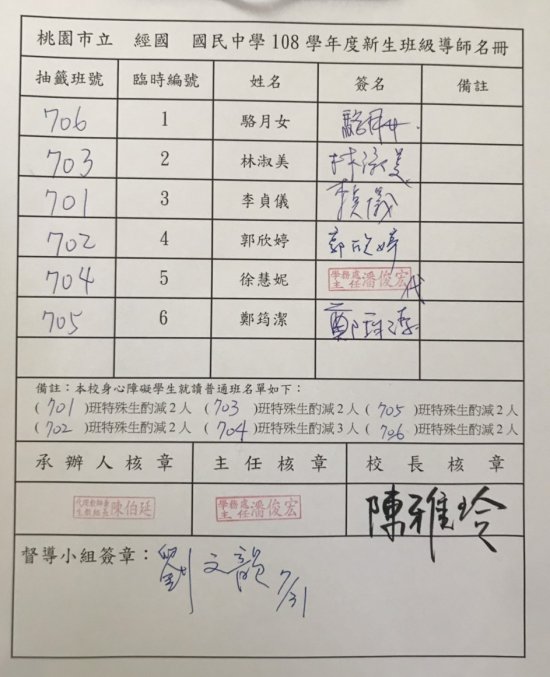 桃園市立 經國 國民中學108學年度新生班級導師名冊
抽籤班號 臨時編號 姓名 簽名 備註
706 1 駱月女 駱月女
703 2 林淑美 林淑美
701 3 李貞儀 李貞儀
702 4 郭欣婷 郭欣婷
704 5 徐慧妮 學務處主任潘俊宏代
705 6 鄭筠潔 鄭筠潔
備註：本校身心障礙學生就讀普通班名單如下：
(701)班特殊生酌減2人 (703)班特殊生酌減2人 (705)班特殊生酌減2人
(702)班特殊生酌減2人 (704)班特殊生酌減3人 (706)班特殊生酌減2人
承辦人核章 主任核章 校長核章
陳伯延 學務處主任潘俊宏 陳雅玲
督導小組簽章：劉文韻 7/31